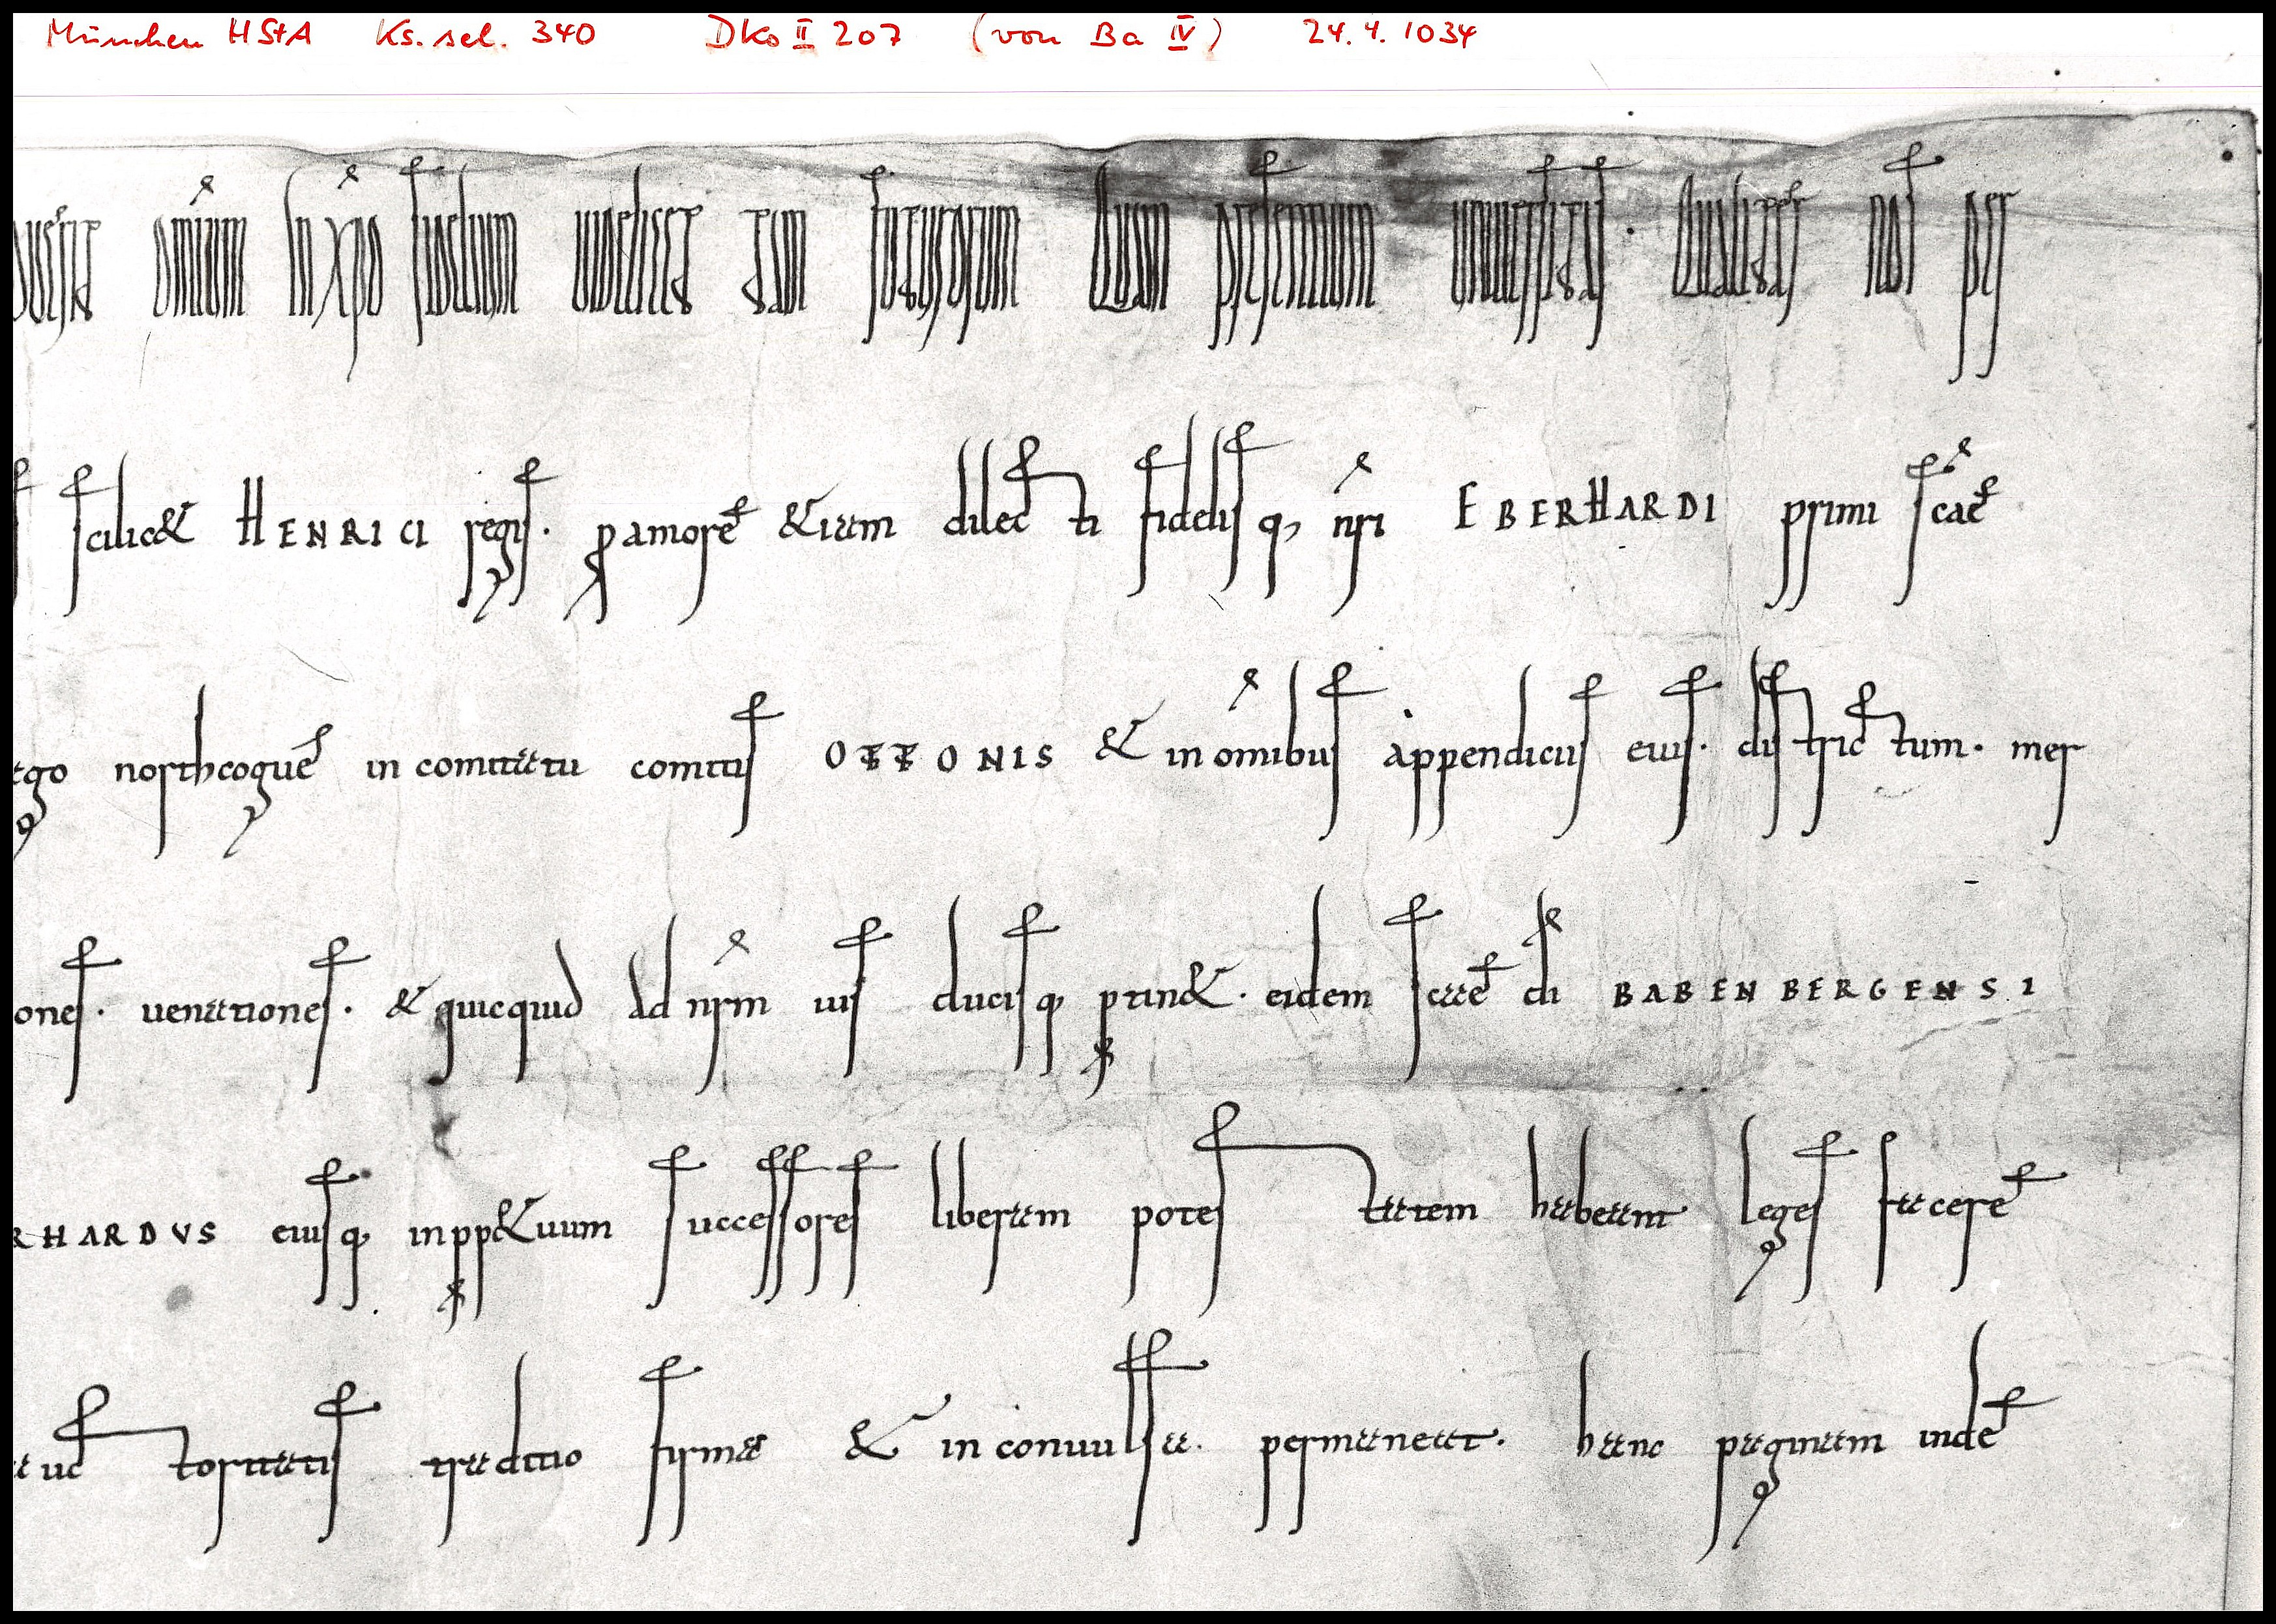 München HStA Ks. sel. 340 DKo II 207 (von Ba IV) 24.4.1034
omium In xpo fidelium uidelicet tam futurorum quam presentium uniuersitas. qualiter nos per
scilic& HENRICI regis. p amore &iam dilecti fidelisq; nri EBERHARDI primi scae
ego northcoguue in comitatu comitis OTTONIS & in omibus appendiciis eius. districtum. mer
ones. uenationes. & quicquid ad nrm ius ducisq; ptin&. eidem scae di BABENBERGENSI
RHARDVS eiusq; inpp&uum successores liberam potestatem habeant leges facere
auctoritatis traditio firma & inconuulsa permaneat. hanc paginam inde